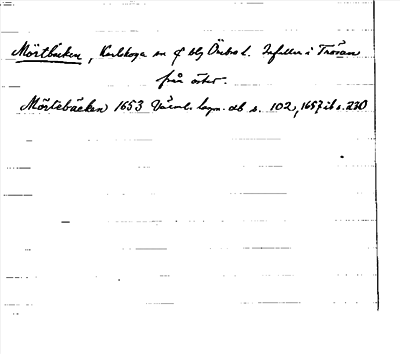 Mörtbäcken, Karlskoga sn o blg Örebro l. Infaller i Trösan
från öster.
Mörtebäcken 1653 Värml. lagm. db s. 102, 1657 ib s. 230